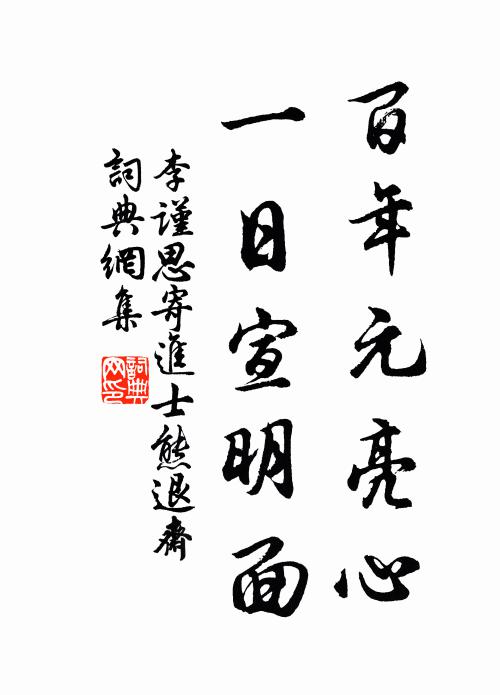 百年元亮心
一日宣明面
李謹思寄進士熊退齋
詞典網集
詞典網印